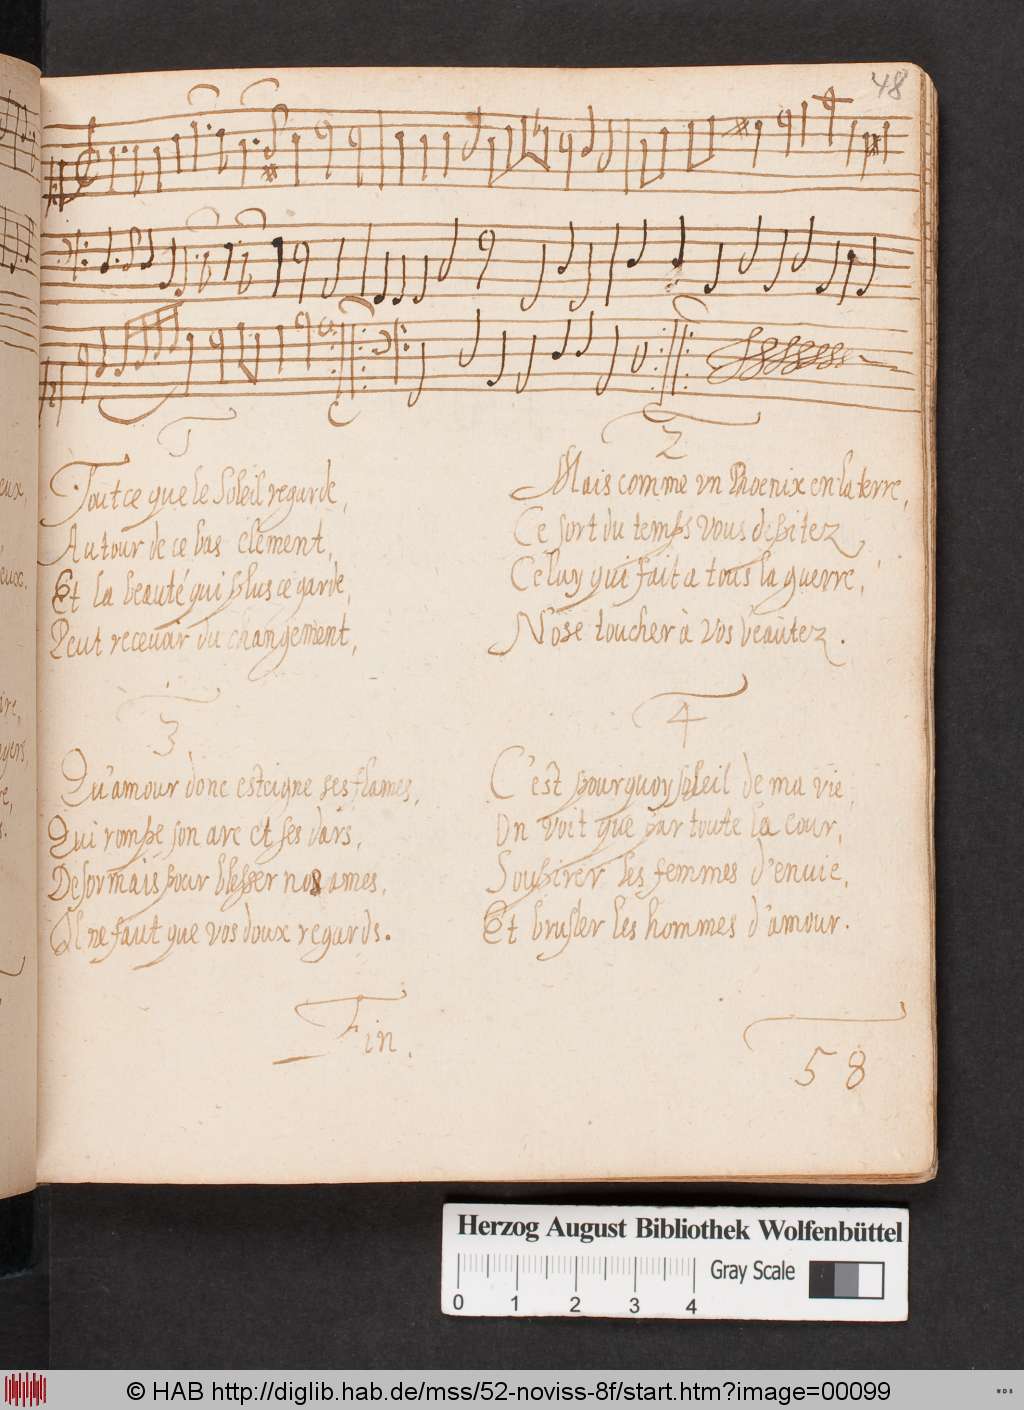 48
1
Tout ce que le Soleil regarde,
Autour de ce bas element,
Et la beauté qui plus ce garde,
Peut recevoir du changement,
2
Mais comme un Phoenix en la terre,
Ce sort du temps vous despitez
Celuy qui fait a tous la guerre,
N'ose toucher à vos beautez.
3.
Qu'amour donc esteigne ses flames,
Qui rompe son arc et ses dars,
Desormais pour blesser nos ames,
Il ne faut que vos doux regards.
4
C'est pourquoy soleil de ma vie,
On voit que par toute la cour,
Soupirer les femmes d'envie,
Et brusler les hommes d'amour.
Fin.
58
Herzog August Bibliothek Wolfenbüttel
Gray Scale
0 1 2 3 4
© HAB http://diglib.hab.de/mss/52-noviss-8f/start.htm?image=00099